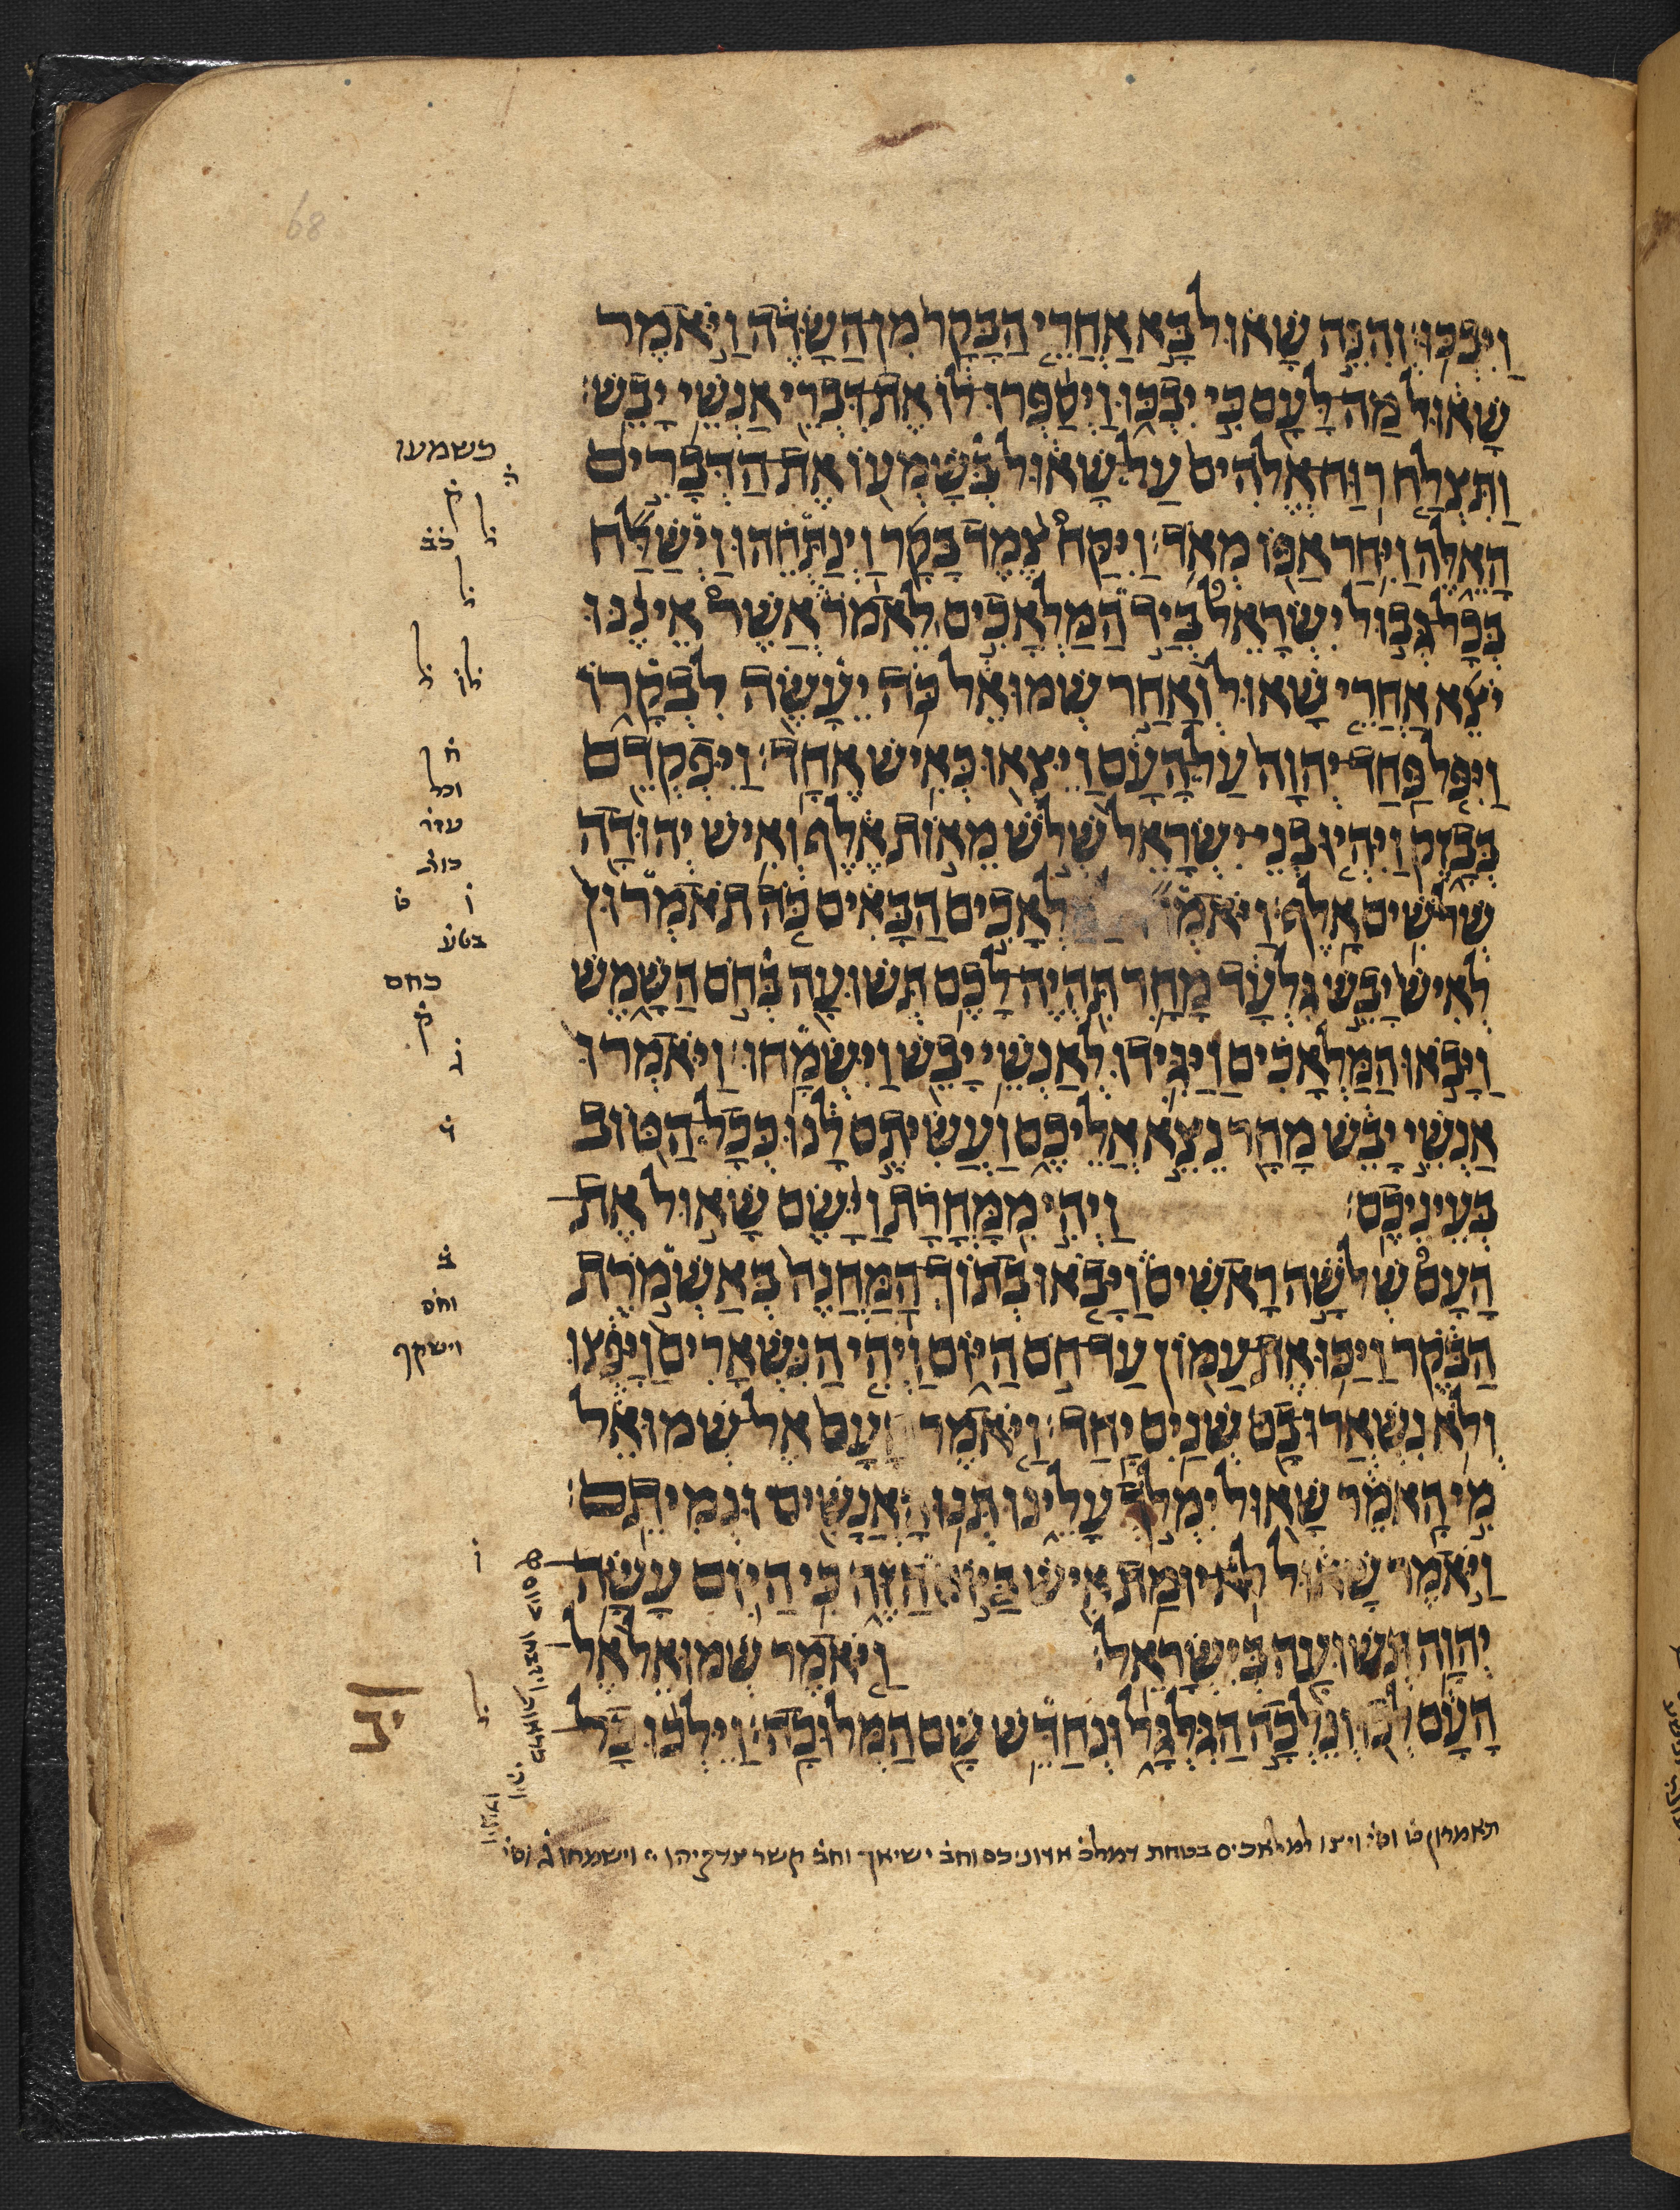 וַיִּבְכּוּ׃ וְהִנֵּה שָׁאוּל בָּא אַחֲרֵי הַבָּקָר מִן הַשָּׂדֶה וַיֹּאמֶר
שָׁאוּל מַה לָּעָם כִּי יִבְכּוּ וַיְסַפְּרוּ לוֹ אֶת דִּבְרֵי אַנְשֵׁי יָבֵשׁ׃
וַתִּצְלַח רוּחַ אֱלֹהִים עַל שָׁאוּל בְּשָׁמְעוֹ אֶת הַדְּבָרִים
הָאֵלֶּה וַיִּחַר אַפּוֹ מְאֹד׃ וַיִּקַּח צֶמֶד בָּקָר וַיְנַתְּחֵהוּ וַיְשַׁלַּח
בְּכָל גְּבוּל יִשְׂרָאֵל בְּיַד הַמַּלְאָכִים לֵאמֹר אֲשֶׁר אֵינֶנּוּ
יֹצֵא אַחֲרֵי שָׁאוּל וְאַחַר שְׁמוּאֵל כֹּה יֵעָשֶׂה לִבְקָרוֹ
וַיִּפֹּל פַּחַד יְהוָה עַל הָעָם וַיֵּצְאוּ כְּאִישׁ אֶחָד׃ וַיִּפְקְדֵם
בְּבָזֶק וַיִּהְיוּ בְנֵי יִשְׂרָאֵל שְׁלֹשׁ מֵאוֹת אֶלֶף וְאִישׁ יְהוּדָה
שְׁלֹשִׁים אָלֶף׃ וַיֹּאמְ לְאָכִים הַבָּאִים כֹּה תֹאמְרוּן
לְאִישׁ יָבֵשׁ גִּלְעָד מָחָר תִּהְיֶה לָכֶם תְּשׁוּעָה בְּחֹם הַשָּׁמֶשׁ
וַיָּבֹאוּ הַמַּלְאָכִים וַיַּגִּידוּ לְאַנְשֵׁי יָבֵשׁ וַיִּשְׂמָחוּ׃ וַיֹּאמְרוּ
אַנְשֵׁי יָבֵשׁ מָחָר נֵצֵא אֲלֵיכֶם וַעֲשִׂיתֶם לָּנוּ כְּכָל הַטּוֹב
בְּעֵינֵיכֶם׃ וַיְהִי מִמָּחֳרָת וַיָּשֶׂם שָׁאוּל אֶת
הָעָם שְׁלֹשָׁה רָאשִׁים וַיָּבֹאוּ בְתוֹךְ הַמַּחֲנֶה בְּאַשְׁמֹרֶת
הַבֹּקֶר וַיַּכּוּ אֶת עַמּוֹן עַד חֹם הַיּוֹם וַיְהִי הַנִּשְׁאָרִים וַיָּפֻצוּ
וְלֹא נִשְׁאֲרוּ בָם שְׁנַיִם יָחַד׃ וַיֹּאמֶר הָעָם אֶל שְׁמוּאֵל
מִי הָאֹמֵר שָׁאוּל יִמְלֹךְ עָלֵינוּ תְּנוּ הָאֲנָשִׁים וּנְמִיתֵם׃
וַיֹּאמֶר שָׁאוּל לֹא יוּמַת אִישׁ בַּיּוֹם הַזֶּה כִּי הַיּוֹם עָשָׂה
יְהוָה תְּשׁוּעָה בְּיִשְׂרָאֵל׃ וַיֹּאמֶר שְׁמוּאֵל אֶל
הָעָם לְכוּ וְנֵלְכָה הַגִּלְגָּל וּנְחַדֵּשׁ שָׁם הַמְּלוּכָה׃ וַיֵּלְכוּ כָל
כשמעו
ק
ל
כב
ל
ל
ח
וכל
עזר
ו
ט
כחם
ק
ג
ב
וחס
וישקף
ו
ל
יב
תאמרון ט וס ויצו למלאכים בטחת דמלכ אדוניכם וחב ישיאך וחב קשר צדקיהו וישמחו ג וס
68